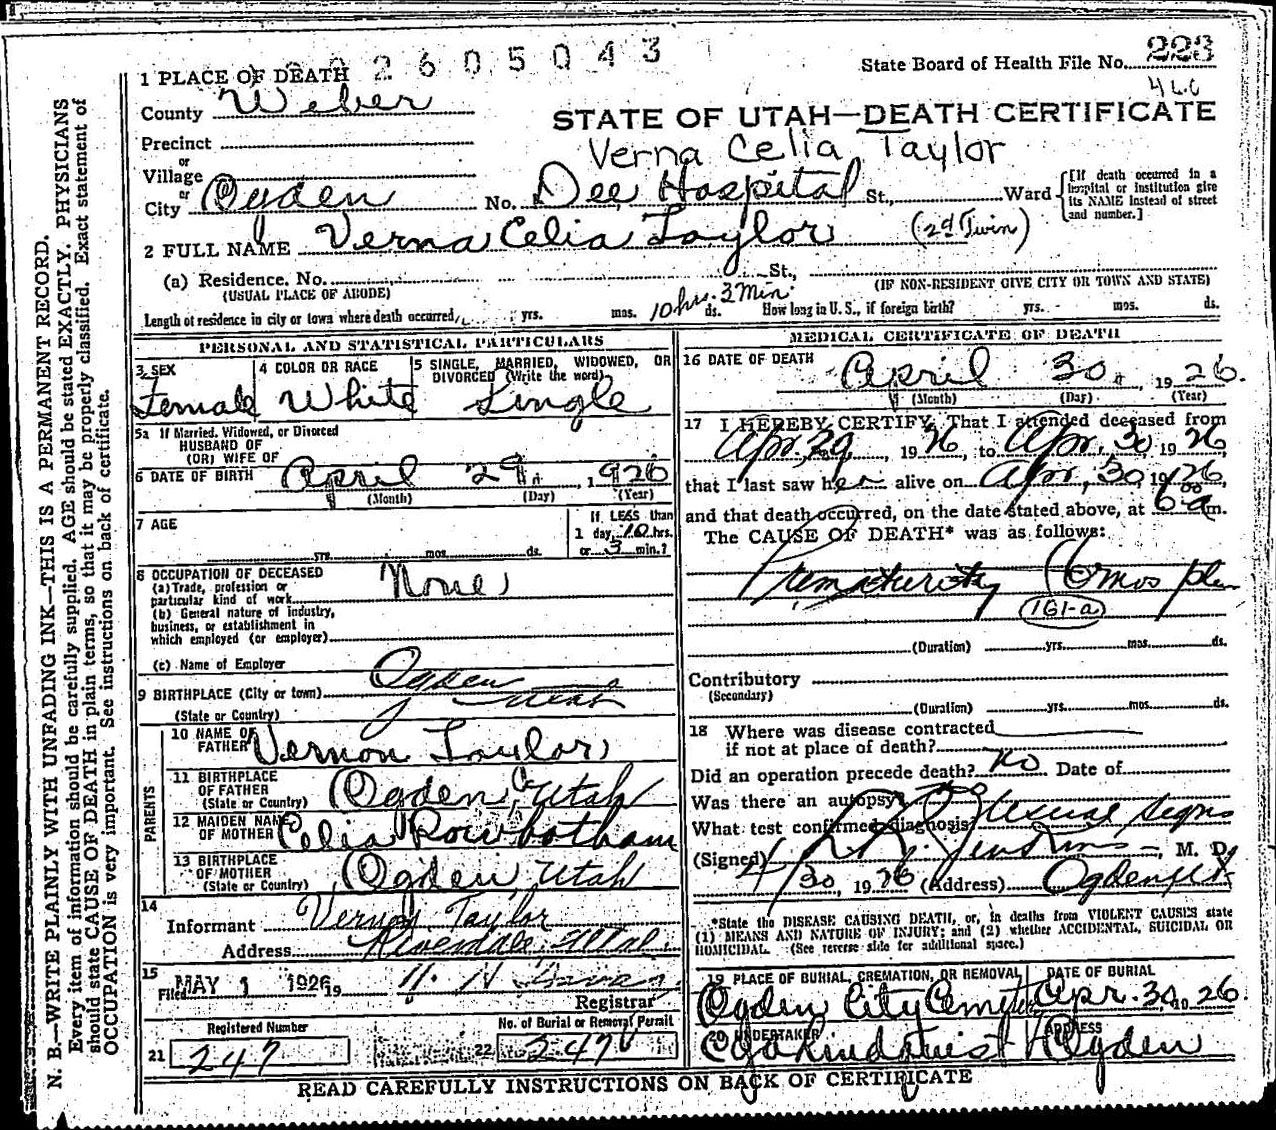 2605043
State Board of Health File No. 223
466
1 PLACE OF DEATH
County Weber
STATE OF UTAH—DEATH CERTIFICATE
Precinct
Verna Celia Taylor
or
Village
or
City Ogden No. Dee Hospital St., Ward
[If death occurred in a hospital or institution give its NAME instead of street and number.]
2 FULL NAME Verna Celia Taylor (2d Twin)
(a) Residence. No. St.,
(USUAL PLACE OF ABODE) (IF NON-RESIDENT GIVE CITY OR TOWN AND STATE)
Length of residence in city or town where death occurred, yrs. mos. 10 hrs. 3 Min. ds. How long in U. S., if foreign birth? yrs. mos. ds.
PERSONAL AND STATISTICAL PARTICULARS
3 SEX
Female
4 COLOR OR RACE
White
5 SINGLE, MARRIED, WIDOWED, OR
DIVORCED (Write the word)
Single
5a If Married, Widowed, or Divorced
HUSBAND OF
(OR) WIFE OF
6 DATE OF BIRTH April 29, 1926
(Month) (Day) (Year)
7 AGE
yrs. mos. ds.
If LESS than
1 day, 10 hrs.
or 3 min.?
8 OCCUPATION OF DECEASED
None
(a) Trade, profession or
particular kind of work
(b) General nature of industry,
business, or establishment in
which employed (or employer)
(c) Name of Employer
9 BIRTHPLACE (City or town) Ogden
(State or Country) Utah
PARENTS
10 NAME OF
FATHER Vernon Taylor
11 BIRTHPLACE
OF FATHER
(State or Country) Ogden, Utah
12 MAIDEN NAME
OF MOTHER Celia Rowbotham
13 BIRTHPLACE
OF MOTHER
(State or Country) Ogden, Utah
14
Informant Vernon Taylor
Address Riverdale, Utah
15
Filed MAY 1 1926 19
Registrar
Registered Number
21 247
No. of Burial or Removal Permit
22 247
MEDICAL CERTIFICATE OF DEATH
16 DATE OF DEATH
April 30, 1926.
(Month) (Day) (Year)
17 I HEREBY CERTIFY, That I attended deceased from
Apr. 29, 1926, to Apr. 30, 1926,
that I last saw her alive on Apr. 30, 1926,
and that death occurred, on the date stated above, at 6 00 a m.
The CAUSE OF DEATH* was as follows:
Prematurity (6 mos
161-a
(Duration) yrs. mos. ds.
Contributory
(Secondary)
(Duration) yrs. mos. ds.
18 Where was disease contracted
if not at place of death?
Did an operation precede death? No Date of
Was there an autopsy? no
What test confirmed diagnosis? Usual signs
(Signed) Jenkins, M. D.
4/30, 1926 (Address) Ogden, Ut
*State the DISEASE CAUSING DEATH, or, in deaths from VIOLENT CAUSES state
(1) MEANS AND NATURE OF INJURY; and (2) whether ACCIDENTAL, SUICIDAL OR
HOMICIDAL. (See reverse side for additional space.)
19 PLACE OF BURIAL, CREMATION, OR REMOVAL
Ogden City Cemet
DATE OF BURIAL
Apr. 30, 1926
20 UNDERTAKER
Lindquist
ADDRESS
Ogden
READ CAREFULLY INSTRUCTIONS ON BACK OF CERTIFICATE
N. B.—WRITE PLAINLY WITH UNFADING INK—THIS IS A PERMANENT RECORD.
Every item of information should be carefully supplied. AGE should be stated EXACTLY. PHYSICIANS
should state CAUSE OF DEATH in plain terms, so that it may be properly classified. Exact statement of
OCCUPATION is very important. See instructions on back of certificate.